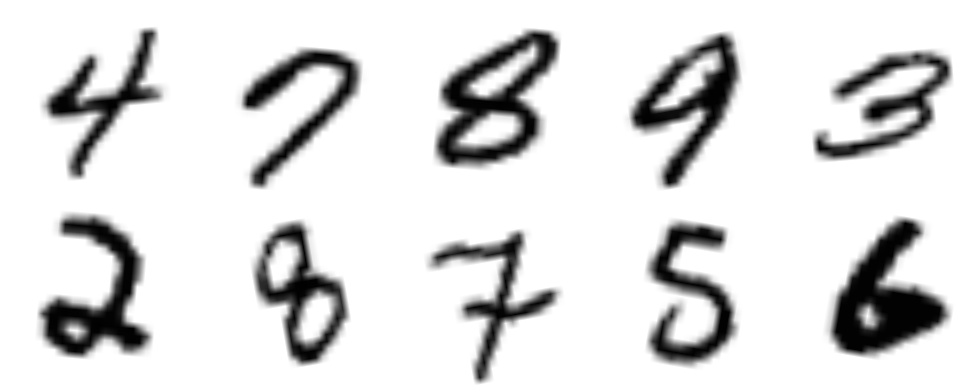 4 7 8 9 3
2 8 7 5 6